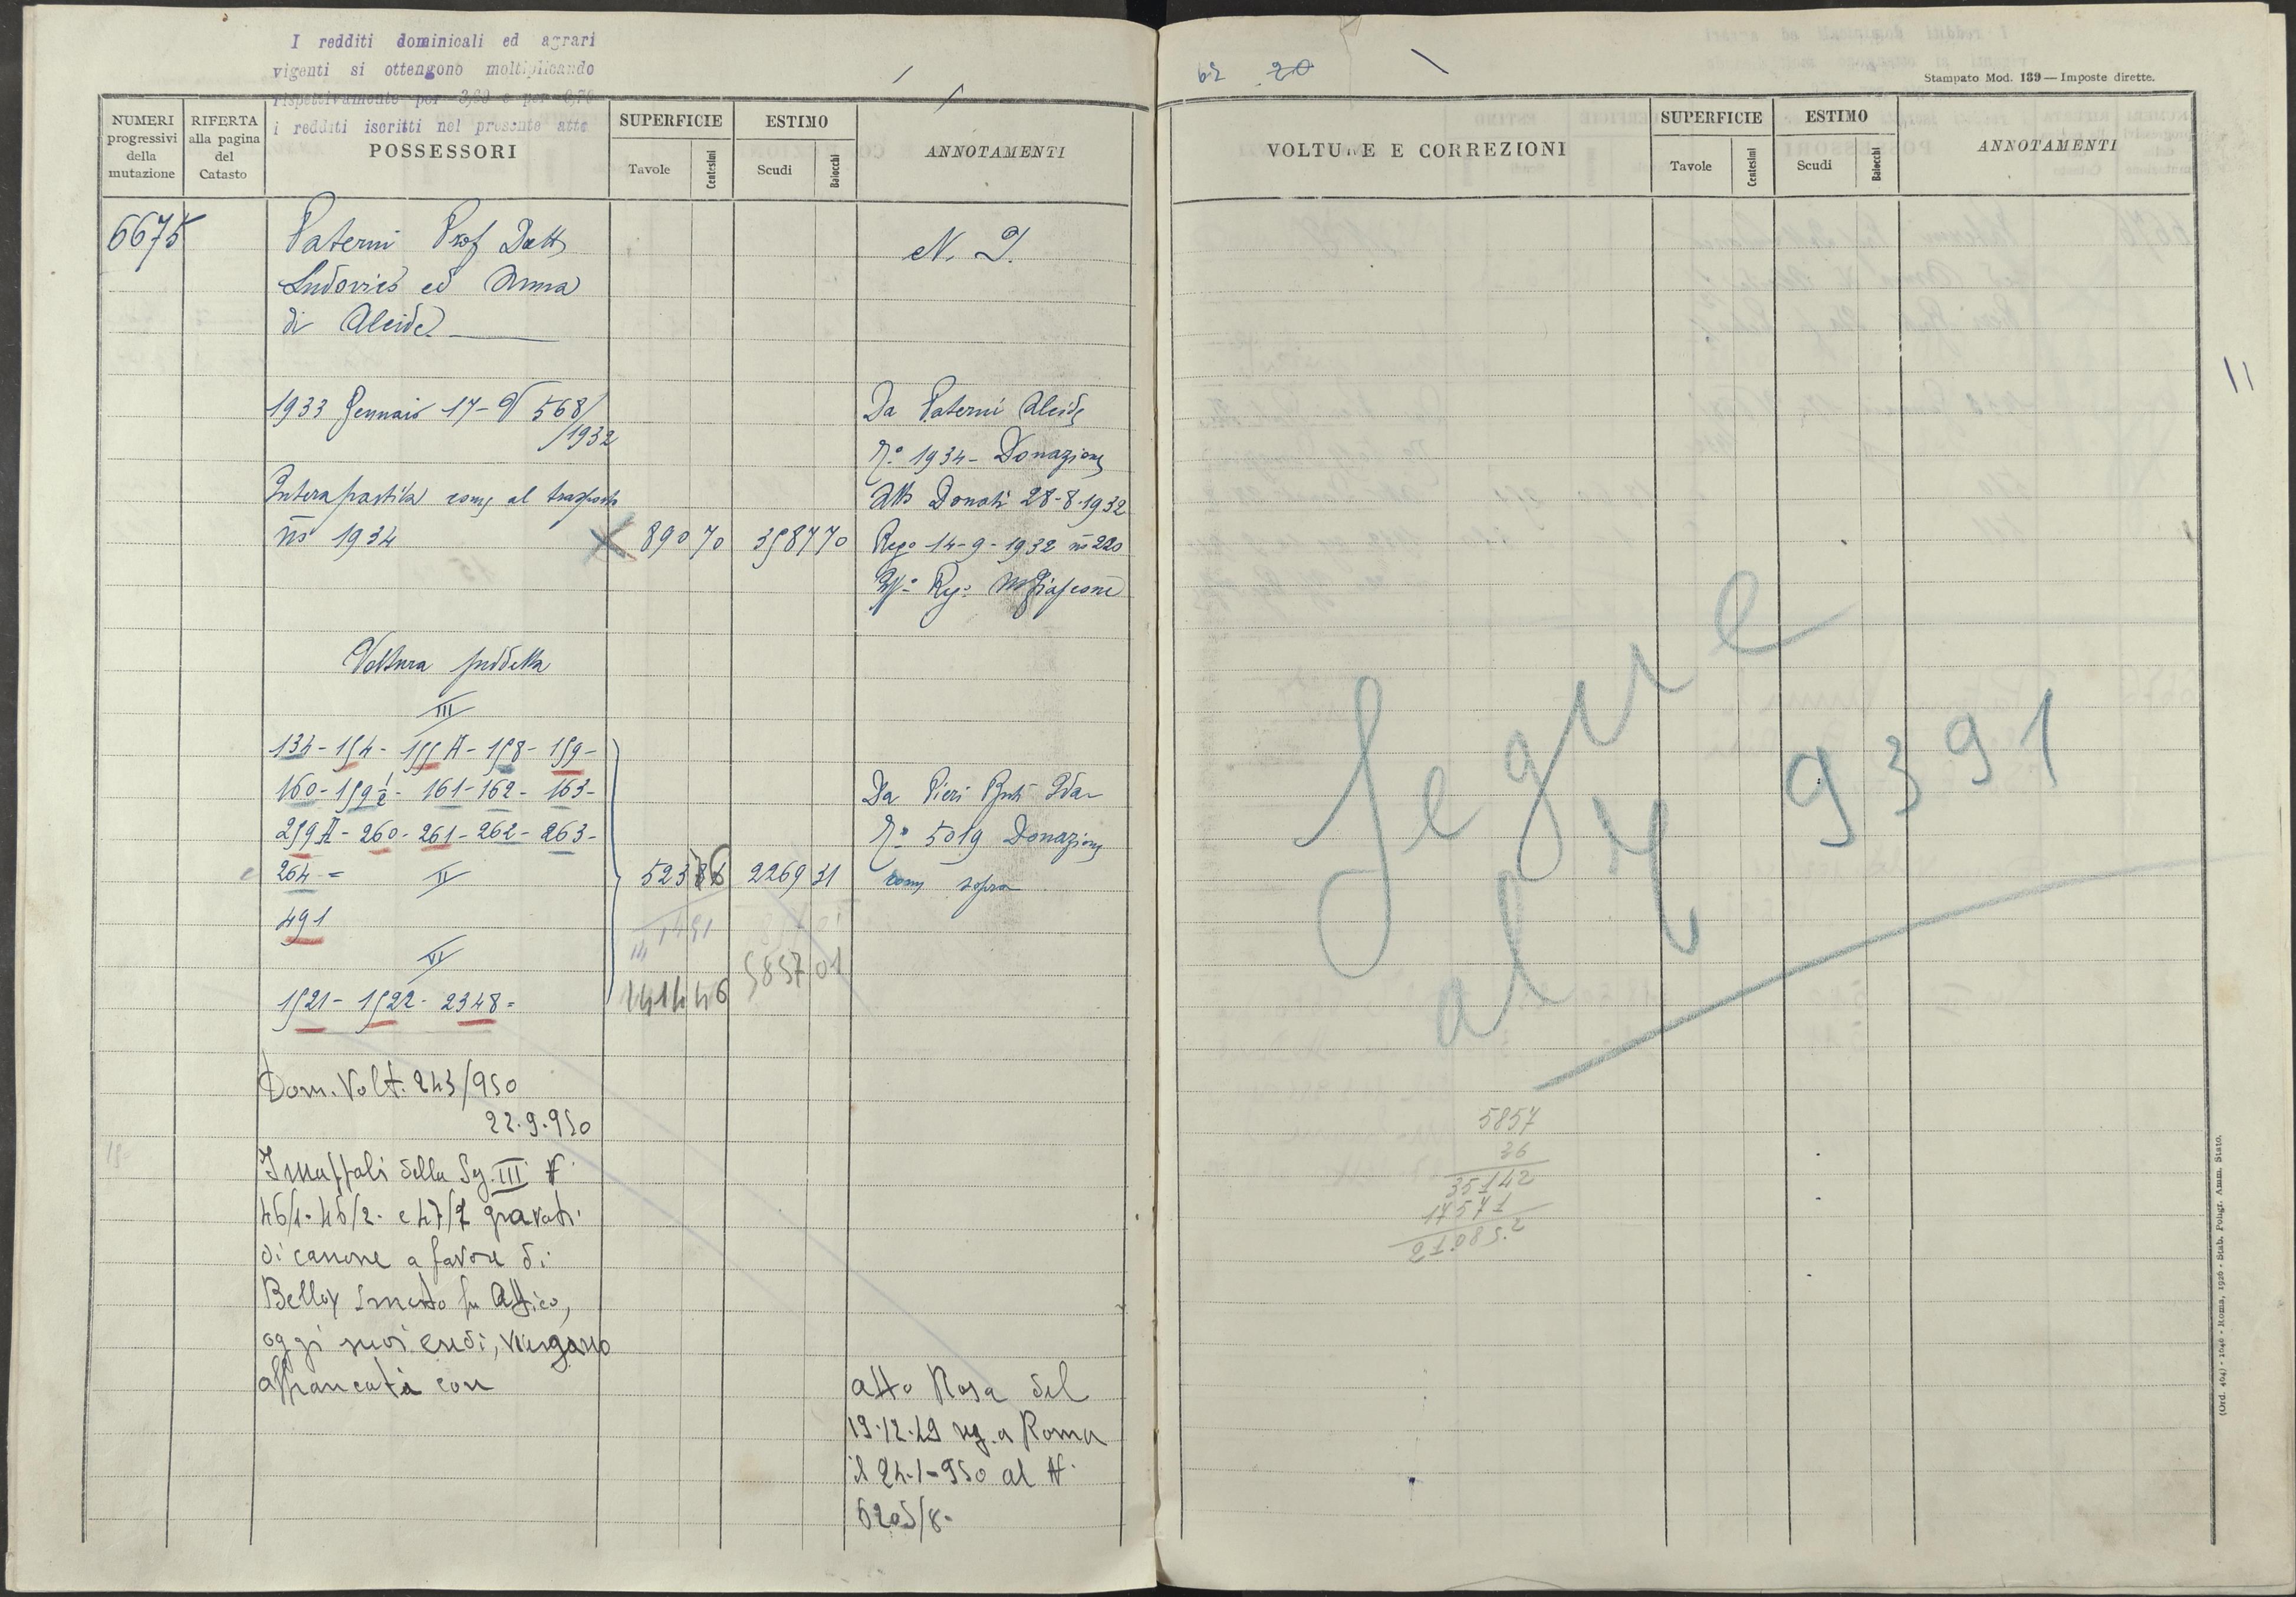 I redditi dominicali ed agrari
vigenti si ottengono moltiplicando
rispettivamente per 3,60 e per 6,70
i redditi iscritti nel presente atto
NUMERI progressivi della mutazione
RIFERTA alla pagina del Catasto
POSSESSORI
SUPERFICIE
Tavole Centesimi
ESTIMO
Scudi Baiocchi
ANNOTAMENTI
6675
Paterni Prof Dott
Ludovico ed Anna
di Alcide
N. I.
1933 Gennaio 17 - V 568/
/1932
Intera partita come al trasporto
n° 1934
89070 358770
Da Paterni Alcide
N° 1934 - Donazione
Atto Donati 28-8-1932
Rego 14-9-1932 n° 220
Voltura suddetta
III
134 - 154 - 155 A - 158 - 159 -
160 - 159 1/2 - 161 - 162 - 163 -
259 A - 260 - 261 - 262 - 263 -
264 = V
491
VI
1521 - 1522 - 2348 =
2269 31
5857 01
1414 46
Da Pieri Buti Ida
N° 5019 Donazione
come sopra
Dom. Volt. 243/950
22.9.950
I mappali della Sez. III N.
46/1 - 46/2 - e 47/2 gravati
di canone a favore di
oggi suoi eredi, vengano
affrancati con
atto Rosa del
19.12.49 reg. a Roma
il 24-1-950 al N.
6205/8.
62 20
Stampato Mod. 139 — Imposte dirette.
VOLTURE E CORREZIONI
SUPERFICIE
Tavole Centesimi
ESTIMO
Scudi Baiocchi
ANNOTAMENTI
11
Segue
al N 9391
5857
36
35142
17571
21085.2
(Ord. 404) - 1040 - Roma, 1926 - Stab. Poligr. Amm. Stato.